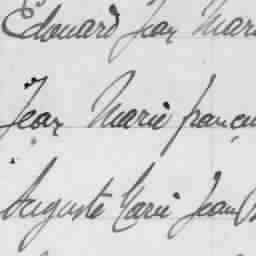 Edouard Jean Mari
Jean Marie françoi
Auguste Marie Jean B